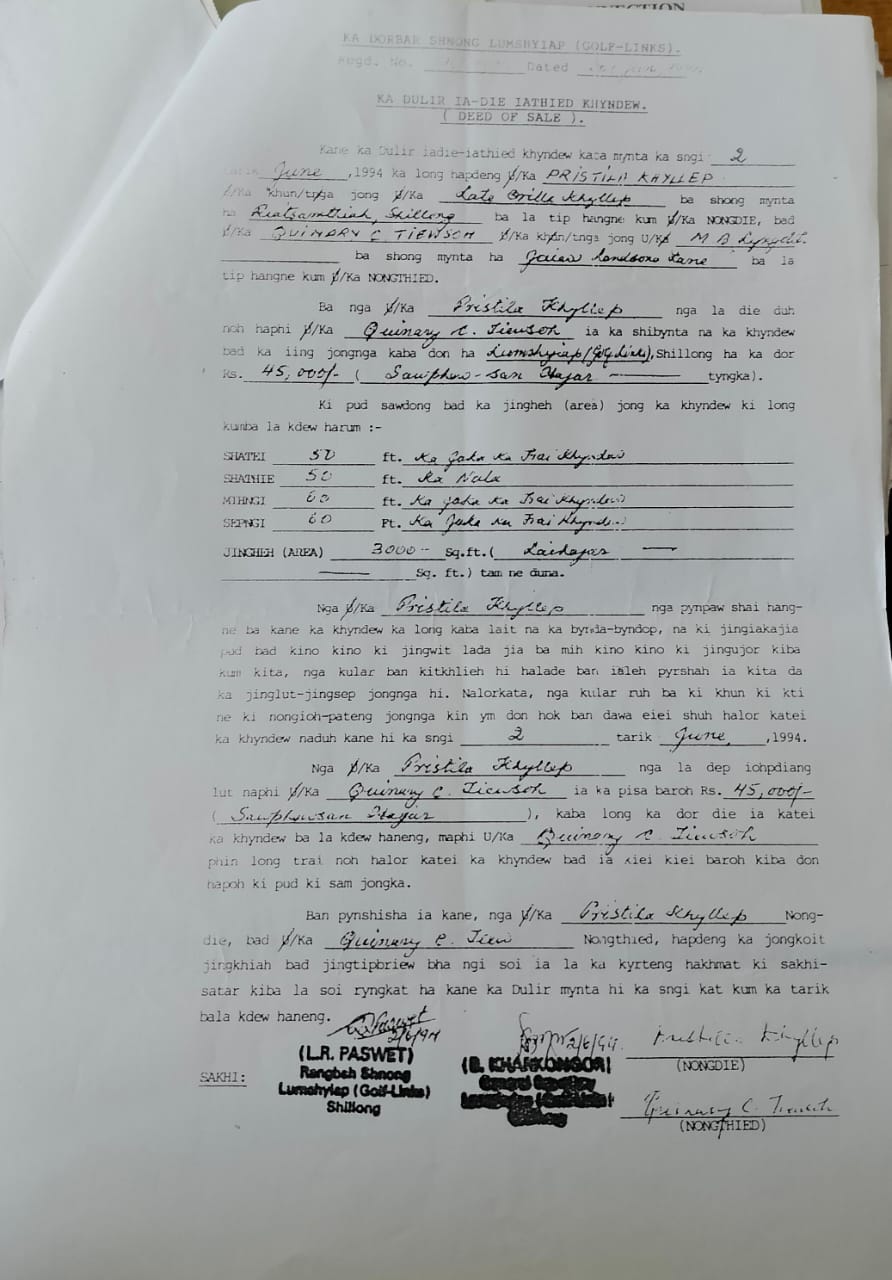 KA DORBAR SHNONG LUMSHYIAP (GOLF-LINKS).
Regd. No. Dated
KA DULIR IA-DIE IATHIED KHYNDEW.
( DEED OF SALE ).
Kane ka Dulir iadie-iathied khyndew kata mynta ka sngi 2
tarik June ,1994 ka long hapdeng U/Ka PRISTILA KHYLLEP
U/Ka khun/tnga jong U/Ka Late Brilla Khyllep ba shong mynta
ha Riatsamthiah, Shillong ba la tip hangne kum U/Ka NONGDIE, bad
U/Ka QUINARY C TIEWSOH U/Ka khun/tnga jong U/Ka M B Lyngdoh
ba shong mynta ha Jaiaw Lansonalane ba la
tip hangne kum U/Ka NONGTHIED.
Ba nga U/Ka Pristila Khyllep nga la die duh
noh haphi U/Ka Quinary C. Tiewsoh ia ka shibynta na ka khyndew
bad ka iing jongnga kaba don ha Lumshyiap (Golf Links), Shillong ha ka dor
Rs. 45,000/- ( Sawphew-san Hajar tyngka).
Ki pud sawdong bad ka jingheh (area) jong ka khyndew ki long
kumba la kdew harum :-
SHATEI 50 ft. Ka Jaka ka Trai Khyndew
SHATHIE 50 ft. Ka Nala
MIHNGI 60 ft. Ka Jaka ka Trai Khyndew
SEPNGI 60 Ft. Ka Jaka ka Trai Khyndew
JINGHEH (AREA) 3000- Sq.ft.( Laihajar
Sq. ft.) tam ne duna.
Nga U/Ka Pristila Khyllep nga pynpaw shai hang-
ne ba kane ka khyndew ka long kaba lait na ka bynda-byndop, na ki jingiakajia
pud bad kino kino ki jingwit lada jia ba mih kino kino ki jingujor kiba
kum kita, nga kular ban kitkhlieh hi halade ban ialeh pyrshah ia kita da
ka jinglut-jingsep jongnga hi. Nalorkata, nga kular ruh ba ki khun ki kti
ne ki nongioh-pateng jongnga kin ym don hok ban dawa eiei shuh halor katei
ka khyndew naduh kane hi ka sngi 2 tarik June ,1994.
Nga U/Ka Pristila Khyllep nga la dep iohpdiang
lut naphi U/Ka Quinary C. Tiewsoh ia ka pisa baroh Rs. 45,000/-
( Sawphewsan Hajar ), kaba long ka dor die ia katei
ka khyndew ba la kdew haneng, maphi U/Ka Quinary C. Tiewsoh
phin long trai noh halor katei ka khyndew bad ia kiei kiei baroh kiba don
hapoh ki pud ki sam jongka.
Ban pynshisha ia kane, nga U/Ka Pristila Khyllep Nong-
die, bad U/Ka Quinary C. Tiew Nongthied, hapdeng ka jongkoit
jingkhiah bad jingtipbriew bha ngi soi ia la ka kyrteng hakhmat ki sakhi-
satar kiba la soi ryngkat ha kane ka Dulir mynta hi ka sngi kat kum ka tarik
bala kdew haneng.
LRPaswet
2/6/94
2/6/94.
Pristila Khyllep
(NONGDIE)
SAKHI:
(L.R. PASWET)
Rangbah Shnong
Lumshyiap (Golf-Links)
Shillong
(B. KHARKONGOR)
General Secretary
Lumshyiap (Golf-Links)
Shillong
Quinary C. Tiewsoh
(NONGTHIED)